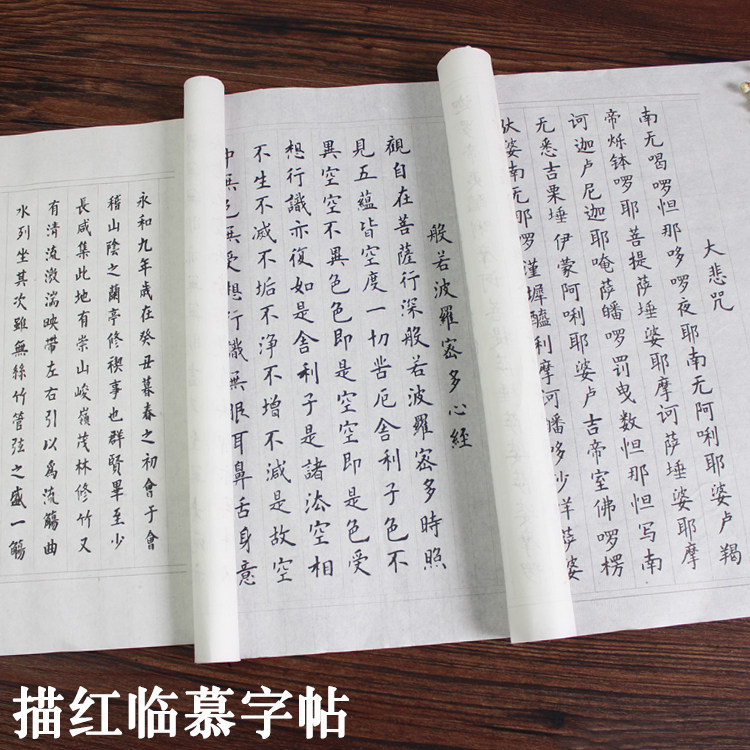 大悲咒
南无喝啰怛那哆啰夜耶南无阿唎耶婆卢羯
帝烁钵啰耶菩提萨埵婆耶摩诃萨埵婆耶摩
诃迦卢尼迦耶唵萨皤啰罚曳数怛那怛写南
无悉吉栗埵伊蒙阿唎耶婆卢吉帝室佛啰楞
驮婆南无那罗谨墀醯利摩诃皤哆沙咩萨婆
般若波羅密多心經
觀自在菩薩行深般若波羅密多時照
見五蘊皆空度一切苦厄舍利子色不
異空空不異色色即是空空即是色受
想行識亦復如是舍利子是諸法空相
不生不滅不垢不净不增不減是故空
中無色無受想行識無眼耳鼻舌身意
永和九年歲在癸丑暮春之初會于會
稽山陰之蘭亭修禊事也群賢畢至少
長咸集此地有崇山峻嶺茂林修竹又
有清流激湍映帶左右引以為流觴曲
水列坐其次雖無絲竹管弦之盛一觴
描红临慕字帖